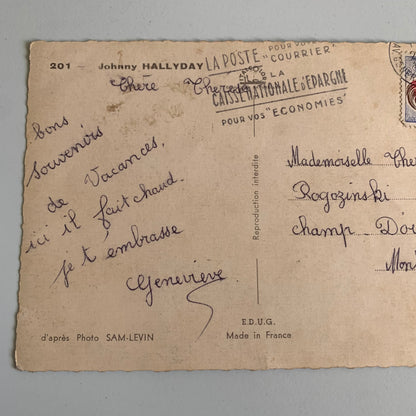 201 - Johnny HALLYDAY
LA POSTE POUR VOTRE
"COURRIER"
LA
CAISSE NATIONALE d'EPARGNE
POUR VOS "ECONOMIES"
Chère Thérèse
Bons
souvenirs
de Vacances,
ici il fait chaud.
je t'embrasse
Geneviève
Reproduction interdite
Mademoiselle The
Rogozinski
champ Do
Mon
d'après Photo SAM-LEVIN
E.D.U.G.
Made in France